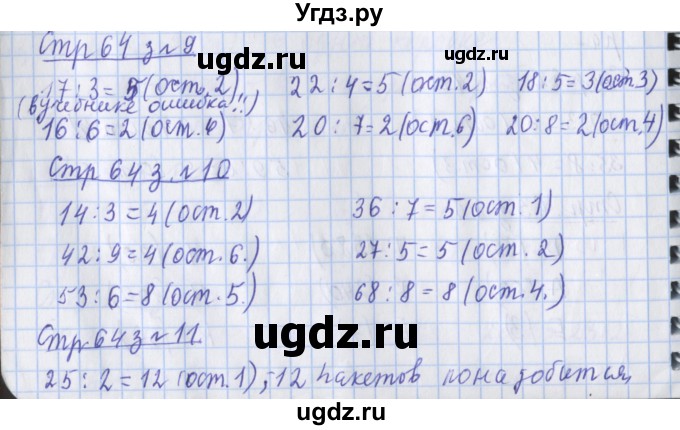 Угдз.ру
Стр 64 з № 9
17 : 3 = 5 (ост. 2) 22 : 4 = 5 (ост. 2) 18 : 5 = 3 (ост 3)
(в учебнике ошибка!!)
16 : 6 = 2 (ост. 4) 20 : 7 = 2 (ост. 6) 20 : 8 = 2 (ост. 4)
Стр 64 з. № 10
14 : 3 = 4 (ост. 2) 36 : 7 = 5 (ост. 1)
42 : 9 = 4 (ост. 6.) 27 : 5 = 5 (ост. 2)
53 : 6 = 8 (ост. 5.) 68 : 8 = 8 (ост. 4.)
Стр 64 з № 11.
25 : 2 = 12 (ост. 1), - 12 пакетов понадобится,
ugdz.ru
ugdz.ru
ugdz.ru
ugdz.ru
ugdz.ru